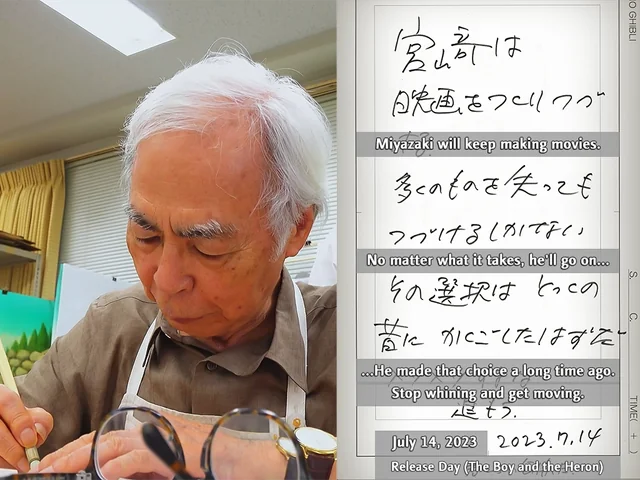 宮崎は
映画をつくりつづ
ける。
Miyazaki will keep making movies.
多くのものを失っても
つづけるしかない
No matter what it takes, he'll go on...
その選択は とっくの
昔に かくごしたはずだ
...He made that choice a long time ago.
Stop whining and get moving.
July 14, 2023
2023.7.14
Release Day (The Boy and the Heron)
O GHIBLI
S.
C.
TIME( + )